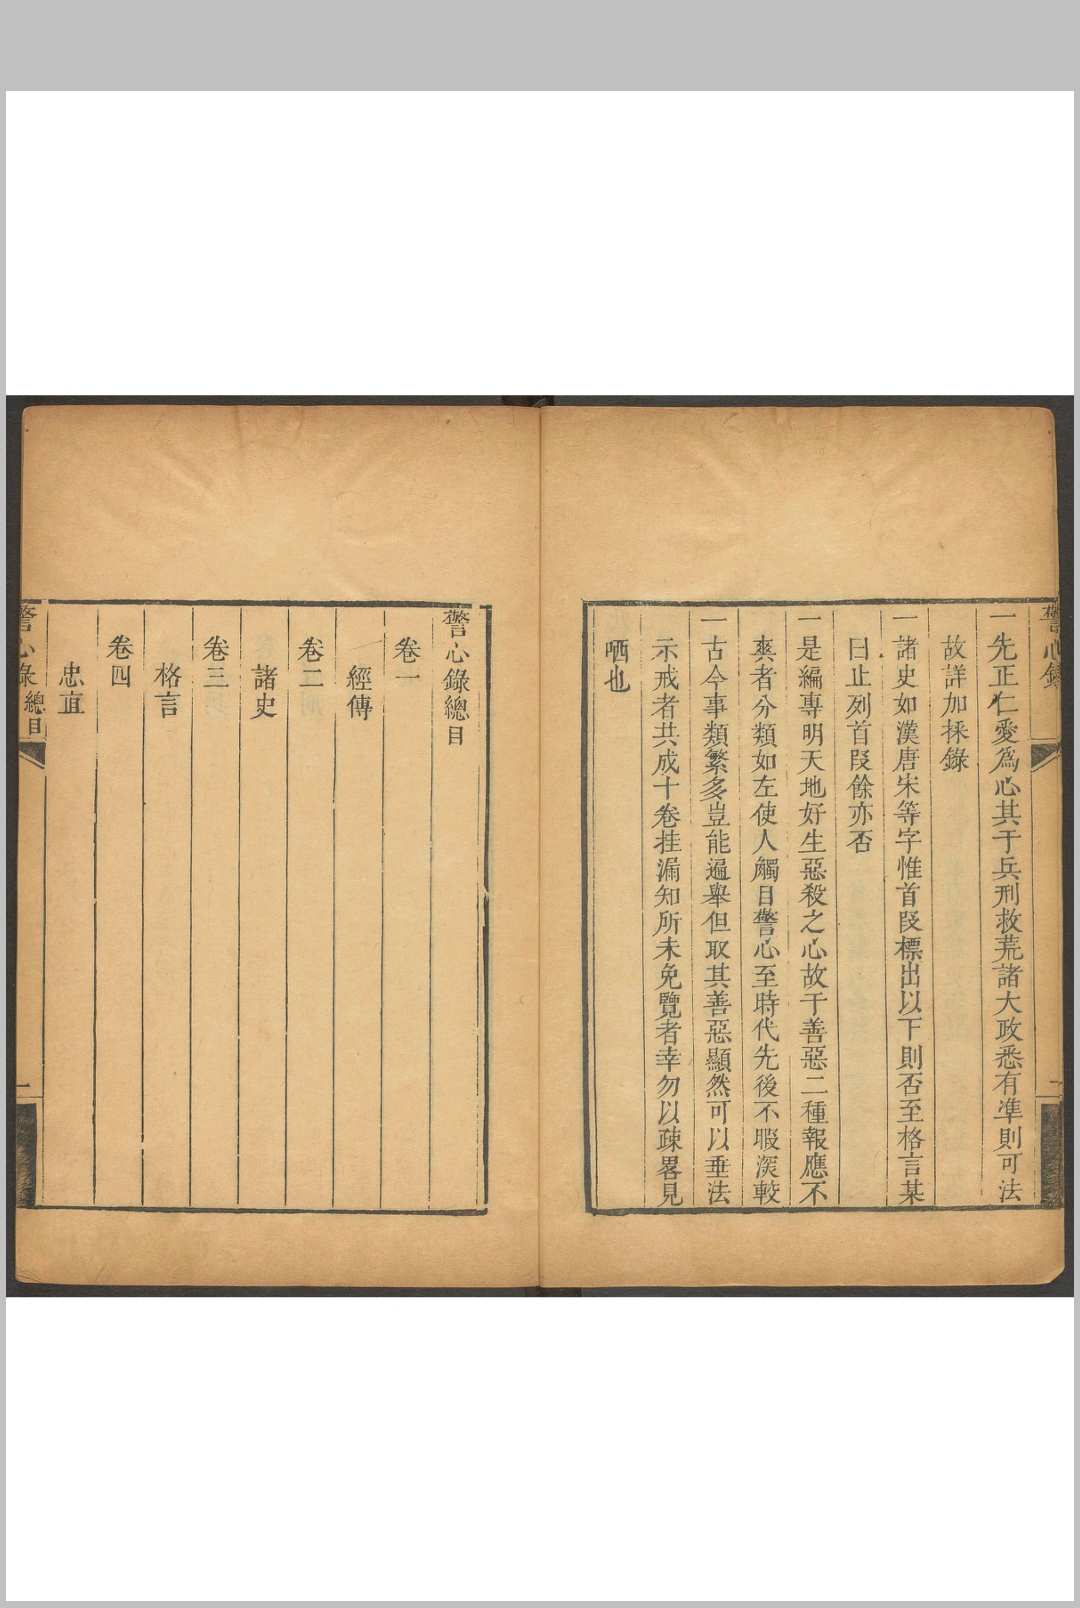 警心錄
一先正仁愛爲心其于兵刑救荒諸大政悉有準則可法
故詳加採錄
一諸史如漢唐宋等字惟首段標出以下則否至格言某
曰止列首段餘亦否
一是編專明天地好生惡殺之心故于善惡二種報應不
爽者分類如左使人觸目警心至時代先後不暇深較
一古今事類繁多豈能遍舉但取其善惡顯然可以垂法
示戒者共成十卷挂漏知所未免覽者幸勿以疎畧見
哂也
警心錄總目
卷一
經傳
卷二
諸史
卷三
格言
卷四
忠直
警心錄 總目 一